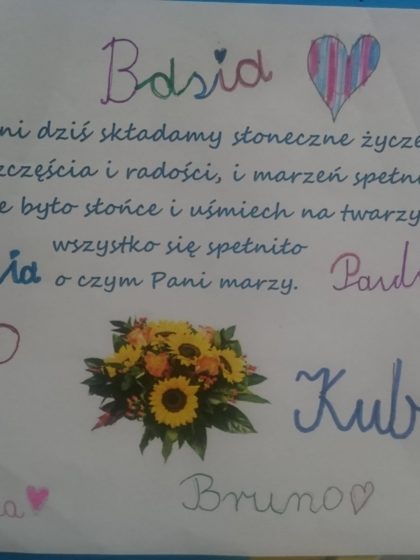 Basia
ni dziś składamy słoneczne życze
zczęścia i radości, i marzeń spełni
e było słońce i uśmiech na twarzy
wszystko się spełniło
o czym Pani marzy.
ia
Kub
Bruno